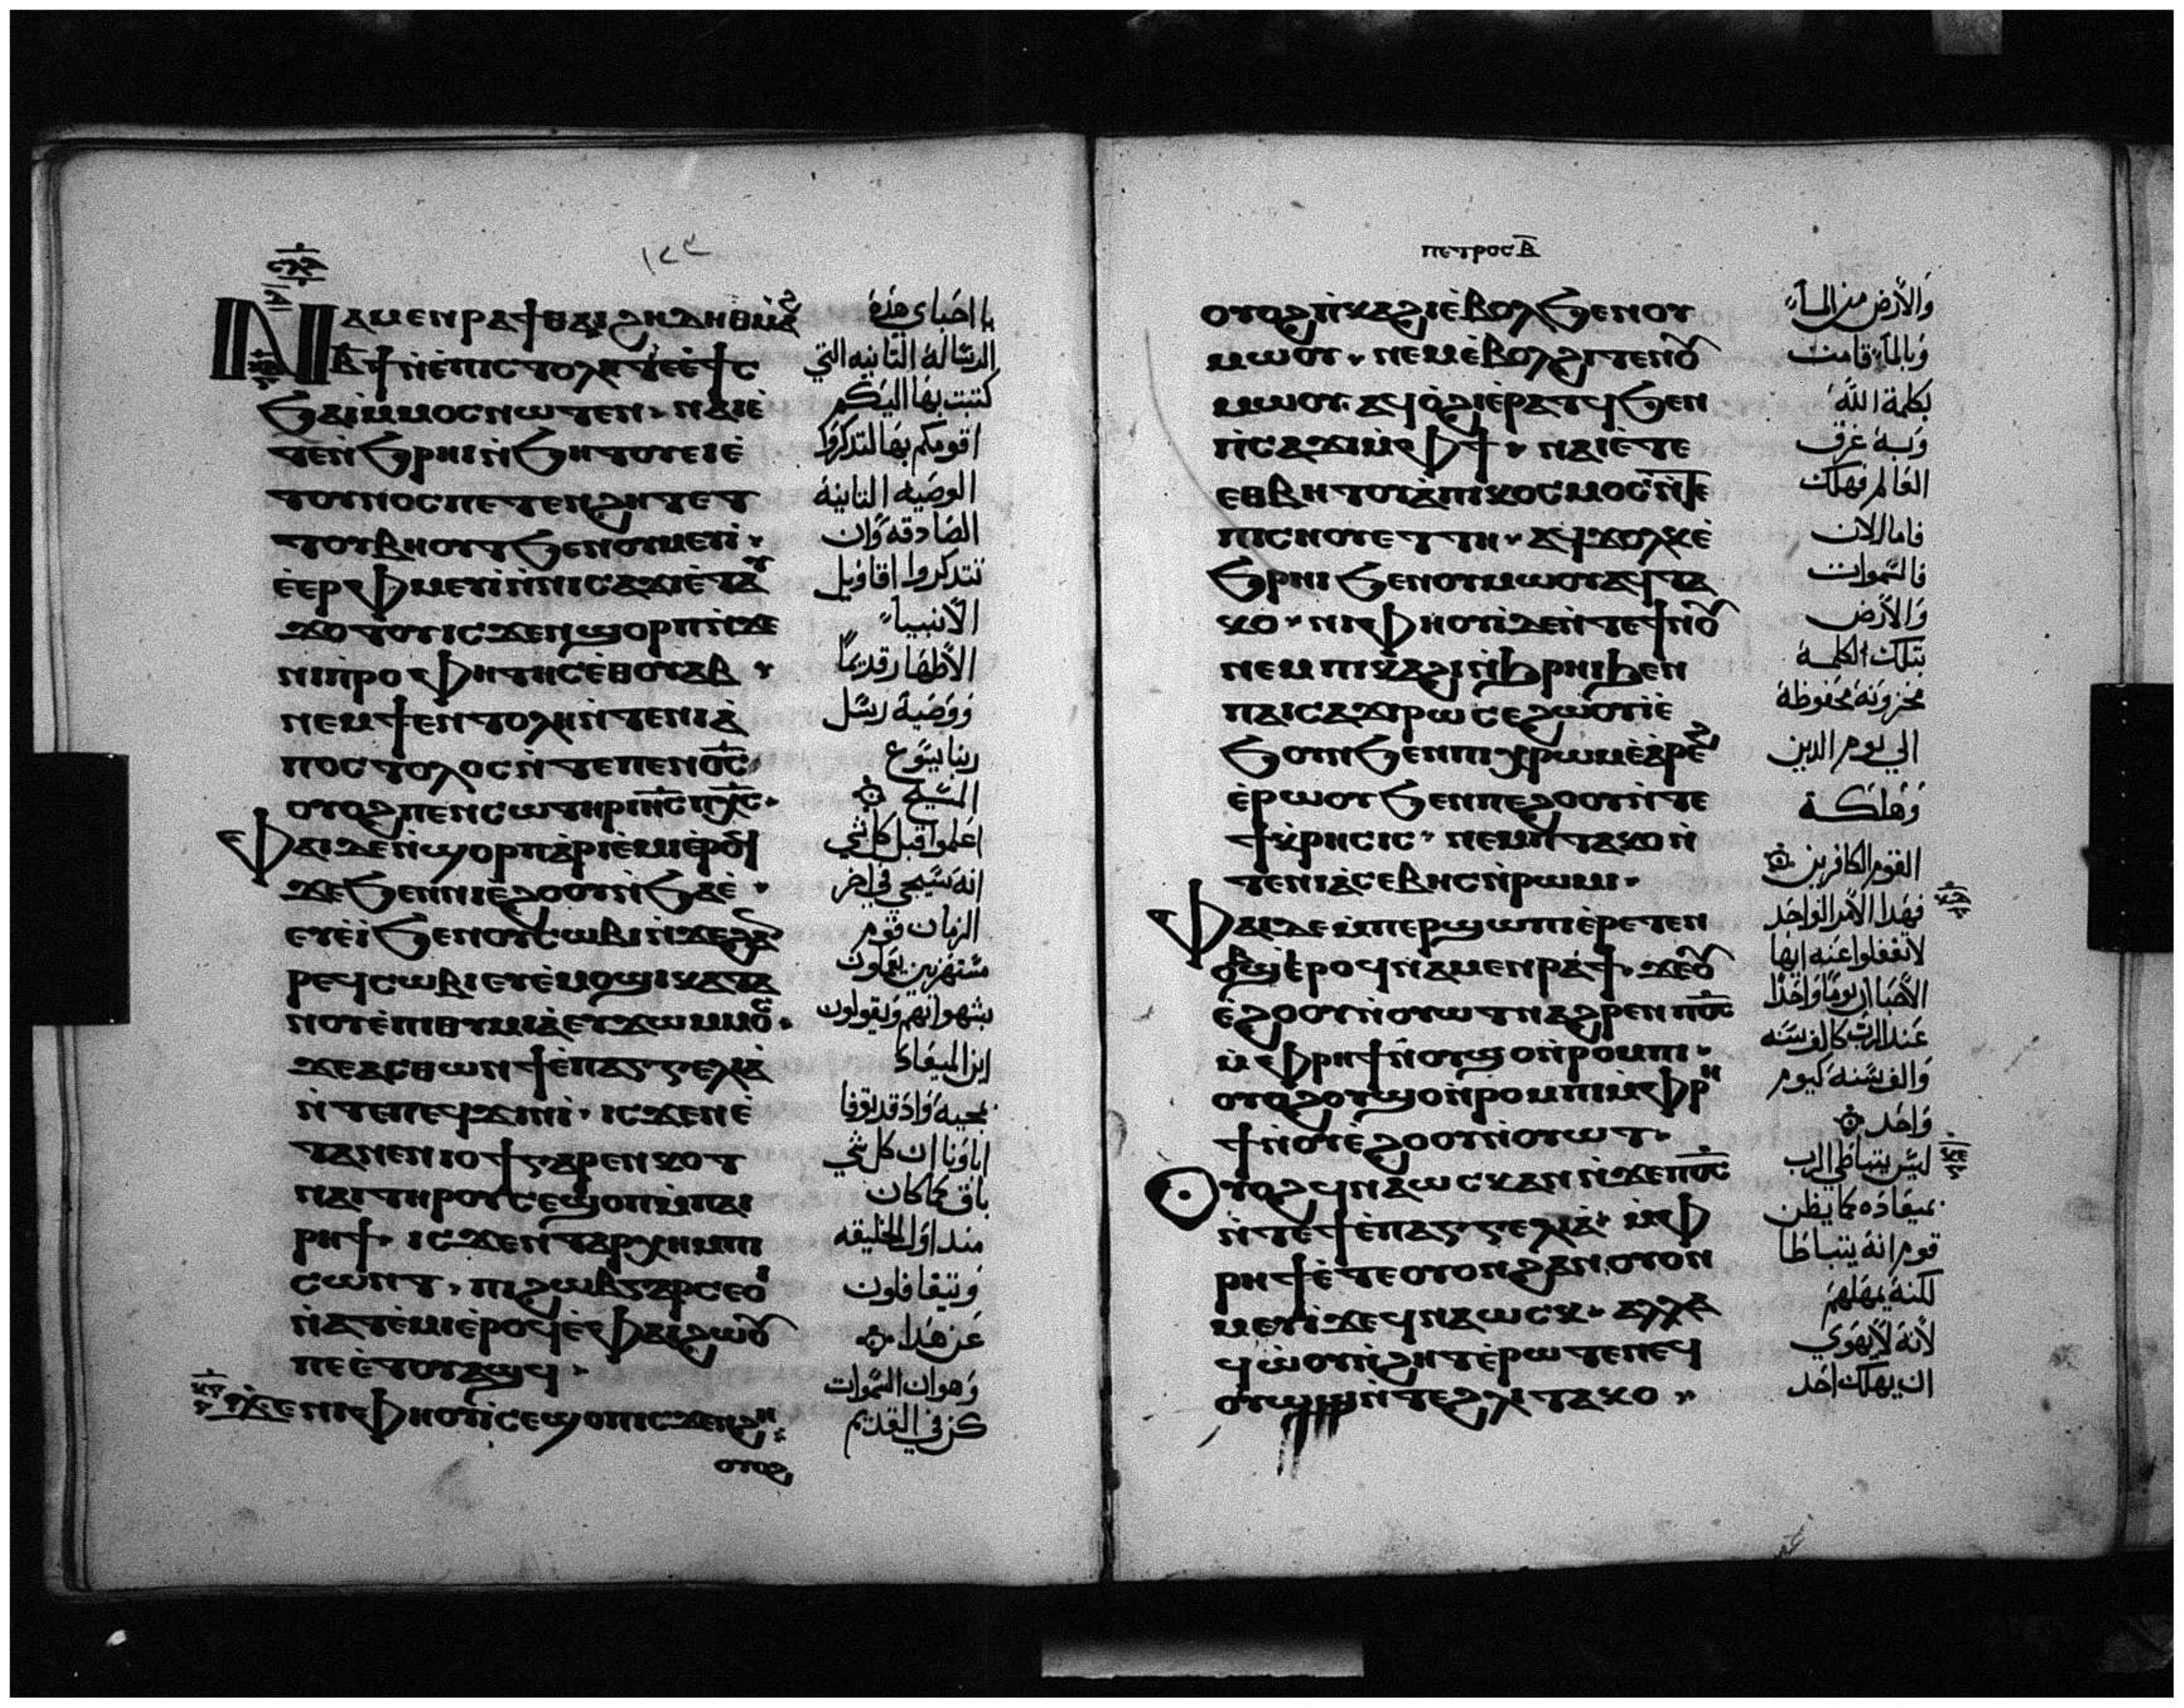 ١٢٣
ⲛⲁⲙⲉⲛⲣⲁϯ ⲑⲁⲓ ϩⲏⲇⲏ ⲑⲙⲁϩ
ⲃ̅ϯ ⲛ̀ⲉ̀ⲡⲓⲥⲧⲟⲗⲏ ⲧⲉ ⲉ̀ϯⲥ
ϧⲁⲓ ⲙ̀ⲙⲟⲥ ⲛⲱⲧⲉⲛ · ⲛⲁⲓ ⲉ̀
ⲧⲉⲛ̀ϧⲣⲏⲓ ⲛ̀ϧⲏⲧⲟⲩ ⲉⲓⲉ̀
ⲧⲟⲩⲛⲟⲥ ⲡⲉⲧⲉⲛϩⲏⲧ ⲉⲧ
ⲧⲟⲩⲃⲏⲟⲩⲧ ϧⲉⲛ ⲟⲩⲙⲉⲩⲓ ·
ⲉ̀ⲉⲣⲫⲙⲉⲩⲓ ⲛ̀ⲛⲓⲥⲁϫⲓ ⲉ̀ⲧⲁⲩ
ϫⲟⲧⲟⲩ ⲓⲥϫⲉⲛ ϣⲟⲣⲡ ⲛ̀ϫⲉ
ⲛⲓⲡ̀ⲣⲟⲫⲏⲧⲏⲥ ⲉ̀ⲑⲟⲩⲁⲃ ·
ⲛⲉⲙ ϯⲉⲛⲧⲟⲗⲏ ⲛ̀ⲧⲉ ⲛⲓⲁ̀
ⲡⲟⲥⲧⲟⲗⲟⲥ ⲛ̀ⲧⲉ ⲡⲉⲛⲟ̅ⲥ̅
ⲟⲩⲟϩ ⲡⲉⲛⲥⲱⲧⲏⲣ ⲓⲏ̅ⲥ̅ ⲡⲭ̅ⲥ̅ ·
ⲫⲁⲓ ⲇⲉ ⲛ̀ϣⲟⲣⲡ ⲁ̀ⲣⲓⲉ̀ⲙⲓ ⲉ̀ⲣⲟϥ
ϫⲉ ϧⲉⲛ ⲛⲓⲉ̀ϩⲟⲟⲩ ⲛ̀ϧⲁⲉ̀ ·
ⲉⲩⲉ̀ⲓ̀ ϧⲉⲛ ⲟⲩⲥⲱⲃⲓ ⲛ̀ϫⲉ ϩⲁⲛ
ⲣⲉϥⲥⲱⲃⲓ ⲉⲩⲉ̀ⲙⲟϣⲓ ⲕⲁⲧⲁ
ⲛⲟⲩⲉ̀ⲡⲓⲑⲩⲙⲓⲁ̀ ⲉⲩϫⲱ ⲙ̀ⲙⲟⲥ ·
ϫⲉ ⲁⲥⲑⲱⲛ ϯⲉ̀ⲡⲁⲅⲅⲉⲗⲓⲁ̀
ⲛ̀ⲧⲉ ⲡⲉϥϫⲓⲛⲓ̀ · ⲓⲥϫⲉⲛ ⲉ̀
ⲧⲁ ⲛⲉⲛⲓⲟϯ ⲅⲁⲣ ⲉⲛⲕⲟⲧ
ⲛⲁⲓ ⲧⲏⲣⲟⲩ ⲥⲉϣⲟⲡ ⲙ̀ⲡⲁⲓ
ⲣⲏϯ · ⲓⲥϫⲉⲛ ⲧⲁⲣⲭⲏ ⲙ̀ⲡⲓ
ⲥⲱⲛⲧ · ⲡⲓϩⲱⲃ ⲅⲁⲣ ⲥⲉⲟⲓ
ⲛ̀ⲁⲧⲉ̀ⲙⲓ ⲉ̀ⲣⲟϥ ⲉ̀ⲫⲁⲓ ϩⲱⲟⲩ
ⲡⲉ ⲉ̀ⲧⲟⲩⲁϣϥ ·
ϫⲉ ⲛⲓⲫⲏⲟⲩⲓ̀ ⲥⲉϣⲟⲡ ⲓⲥϫⲉⲛ ϩⲏ
ⲟⲩⲟϩ
يا احباي هذه
الرساله الثانيه التي
كتبت بها اليكم
اقومكم بها لتذكروا
الوصيه الثانية
الصادقه وان
تتذكروا اقاويل
الانبياء
الاطهار قديما
ووصية رسل
ربنا يسوع
المسيح
اعلموا قبل كل شي
انه سيجي في اخر
الزمان قوم
مستهزين يعملون
بشهواتهم ويقولون
اين الميعاد
بمجيه واذ قد توفا
اباونا ان كل شي
باق كما كان
منذ اول الخليقه
ويتغافلون
عن هذا
وهو ان السموات
كن في القديم
ⲡⲉⲧⲣⲟⲥ ⲃ̅
ⲟⲩⲟϩ ⲡ̀ⲕⲁϩⲓ ⲉ̀ⲃⲟⲗ ϧⲉⲛ ⲟⲩ
ⲙⲱⲟⲩ · ⲛⲉⲙ ⲉ̀ⲃⲟⲗ ϩⲓⲧⲉⲛ ⲟⲩ
ⲙⲱⲟⲩ ⲁϥⲟ̀ϩⲓ ⲉ̀ⲣⲁⲧϥ ϧⲉⲛ
ⲡ̀ⲥⲁϫⲓ ⲙ̀ⲫϯ · ⲛⲁⲓ ⲉ̀ⲧⲉ
ⲉⲑⲃⲏⲧⲟⲩ ⲁ̀ ⲡⲓⲕⲟⲥⲙⲟⲥ ⲛ̀ⲧⲉ
ⲡⲓⲥⲏⲟⲩ ⲉⲧⲧⲏ · ⲁϥϫⲟⲗⲕ ⲉ̀
ϧⲣⲏⲓ ϧⲉⲛ ⲟⲩⲙⲱⲟⲩ ⲁϥⲧⲁ
ⲕⲟ · ⲛⲓⲫⲏⲟⲩⲓ̀ ⲇⲉ ⲛ̀ⲧⲉ ϯⲛⲟⲩ
ⲛⲉⲙ ⲡⲓⲕⲁϩⲓ ⲛ̀ϧⲣⲏⲓ ϧⲉⲛ
ⲡⲁⲓⲥⲁϫⲓ ⲣⲱ ⲥⲉϩⲱⲟⲩⲓ̀ ⲉ̀
ϧⲟⲩⲛ ϧⲉⲛ ⲡⲓⲭⲣⲱⲙ ⲉ̀ⲁ̀ⲣⲉϩ
ⲉ̀ⲣⲱⲟⲩ ϧⲉⲛ ⲡⲉϩⲟⲟⲩ ⲛ̀ⲧⲉ
ϯⲕⲣⲏⲥⲓⲥ · ⲛⲉⲙ ⲡ̀ⲧⲁⲕⲟ ⲛ̀
ⲧⲉ ⲛⲓⲁ̀ⲥⲉⲃⲏⲥ ⲛ̀ⲣⲱⲙⲓ ·
ⲫⲁⲓ ⲇⲉ ⲙ̀ⲡⲉⲣϣⲱⲡⲓ ⲉ̀ⲣⲉⲧⲉⲛ
ⲟⲃϣ ⲉ̀ⲣⲟϥ ⲛⲁⲙⲉⲛⲣⲁϯ · ϫⲉ ⲟⲩ
ⲉ̀ϩⲟⲟⲩ ⲛ̀ⲟⲩⲱⲧ ⲛⲁϩⲣⲉⲛ ⲡⲟ̅ⲥ̅
ⲙ̀ⲫⲣⲏϯ ⲛ̀ⲟⲩϣⲟ ⲛ̀ⲣⲟⲙⲡⲓ ·
ⲟⲩⲟϩ ⲟⲩϣⲟ ⲛ̀ⲣⲟⲙⲡⲓ ⲙ̀ⲫⲣⲏ
ϯ ⲛ̀ⲟⲩⲉ̀ϩⲟⲟⲩ ⲛ̀ⲟⲩⲱⲧ ·
ⲟⲩⲟϩ ϥⲛⲁⲱⲥⲕ ⲁⲛ ⲛ̀ϫⲉ ⲡⲟ̅ⲥ̅
ⲛ̀ⲧⲉ ϯⲉ̀ⲡⲁⲅⲅⲉⲗⲓⲁ̀ · ⲙ̀ⲫ
ⲣⲏϯ ⲉ̀ⲧⲉ ⲟⲩⲟⲛ ϩⲁⲛⲟⲩⲟⲛ
ⲙⲉⲩⲓ ϫⲉ ϥⲛⲁⲱⲥⲕ · ⲁⲗⲗⲁ
ϥⲱ̀ⲟⲩ ⲛ̀ϩⲏⲧ ⲉ̀ⲣⲱⲧⲉⲛ ⲉϥ
ⲟⲩⲱϣ ⲛ̀ⲧⲉ ϩⲗⲓ ⲧⲁⲕⲟ ·
والارض من الماء
وبالماء قامت
بكلمة الله
وبه غرق
العالم فهلك
فاما الان
فالسموات
والارض
بتلك الكلمة
مخزونة محفوظة
الي يوم الدين
وهلكة
القوم الكافرين
فهذا الامر الواحد
لا تغفلوا عنه ايها
الاحبا ان يوما واحدا
عند الرب كالف سنه
والف سنه كيوم
واحد
ليس يتباطي الرب
بميعاده كما يظن
قوم انه يتباطا
لكنه يمهلهم
لانه لا يهوي
ان يهلك احد